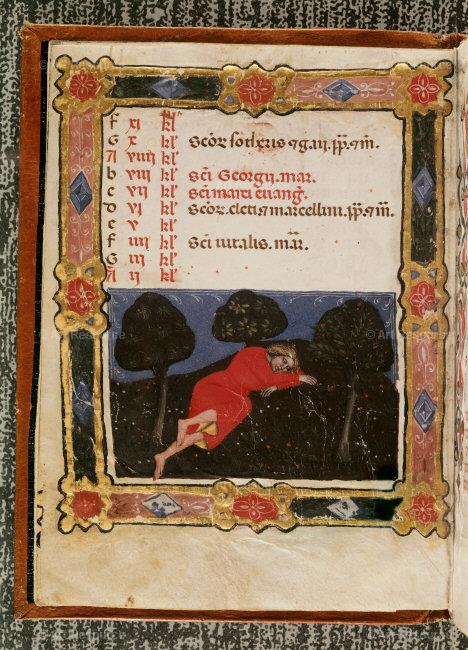 f xi kl'
G x kl' Scōr sotheris ⁊ g. iii. pp̄. ⁊ m̄.
A viiii kl'
b viii kl' Sc̄i Georgij. mar.
c vii kl' Sc̄i marci euanḡ.
d vi kl' Scōr. cleti. ⁊ marcellini. pp̄. ⁊ m̄.
e v kl'
f iiii kl' Sc̄i uitalis. mar̄.
G iii kl'
A ii kl'